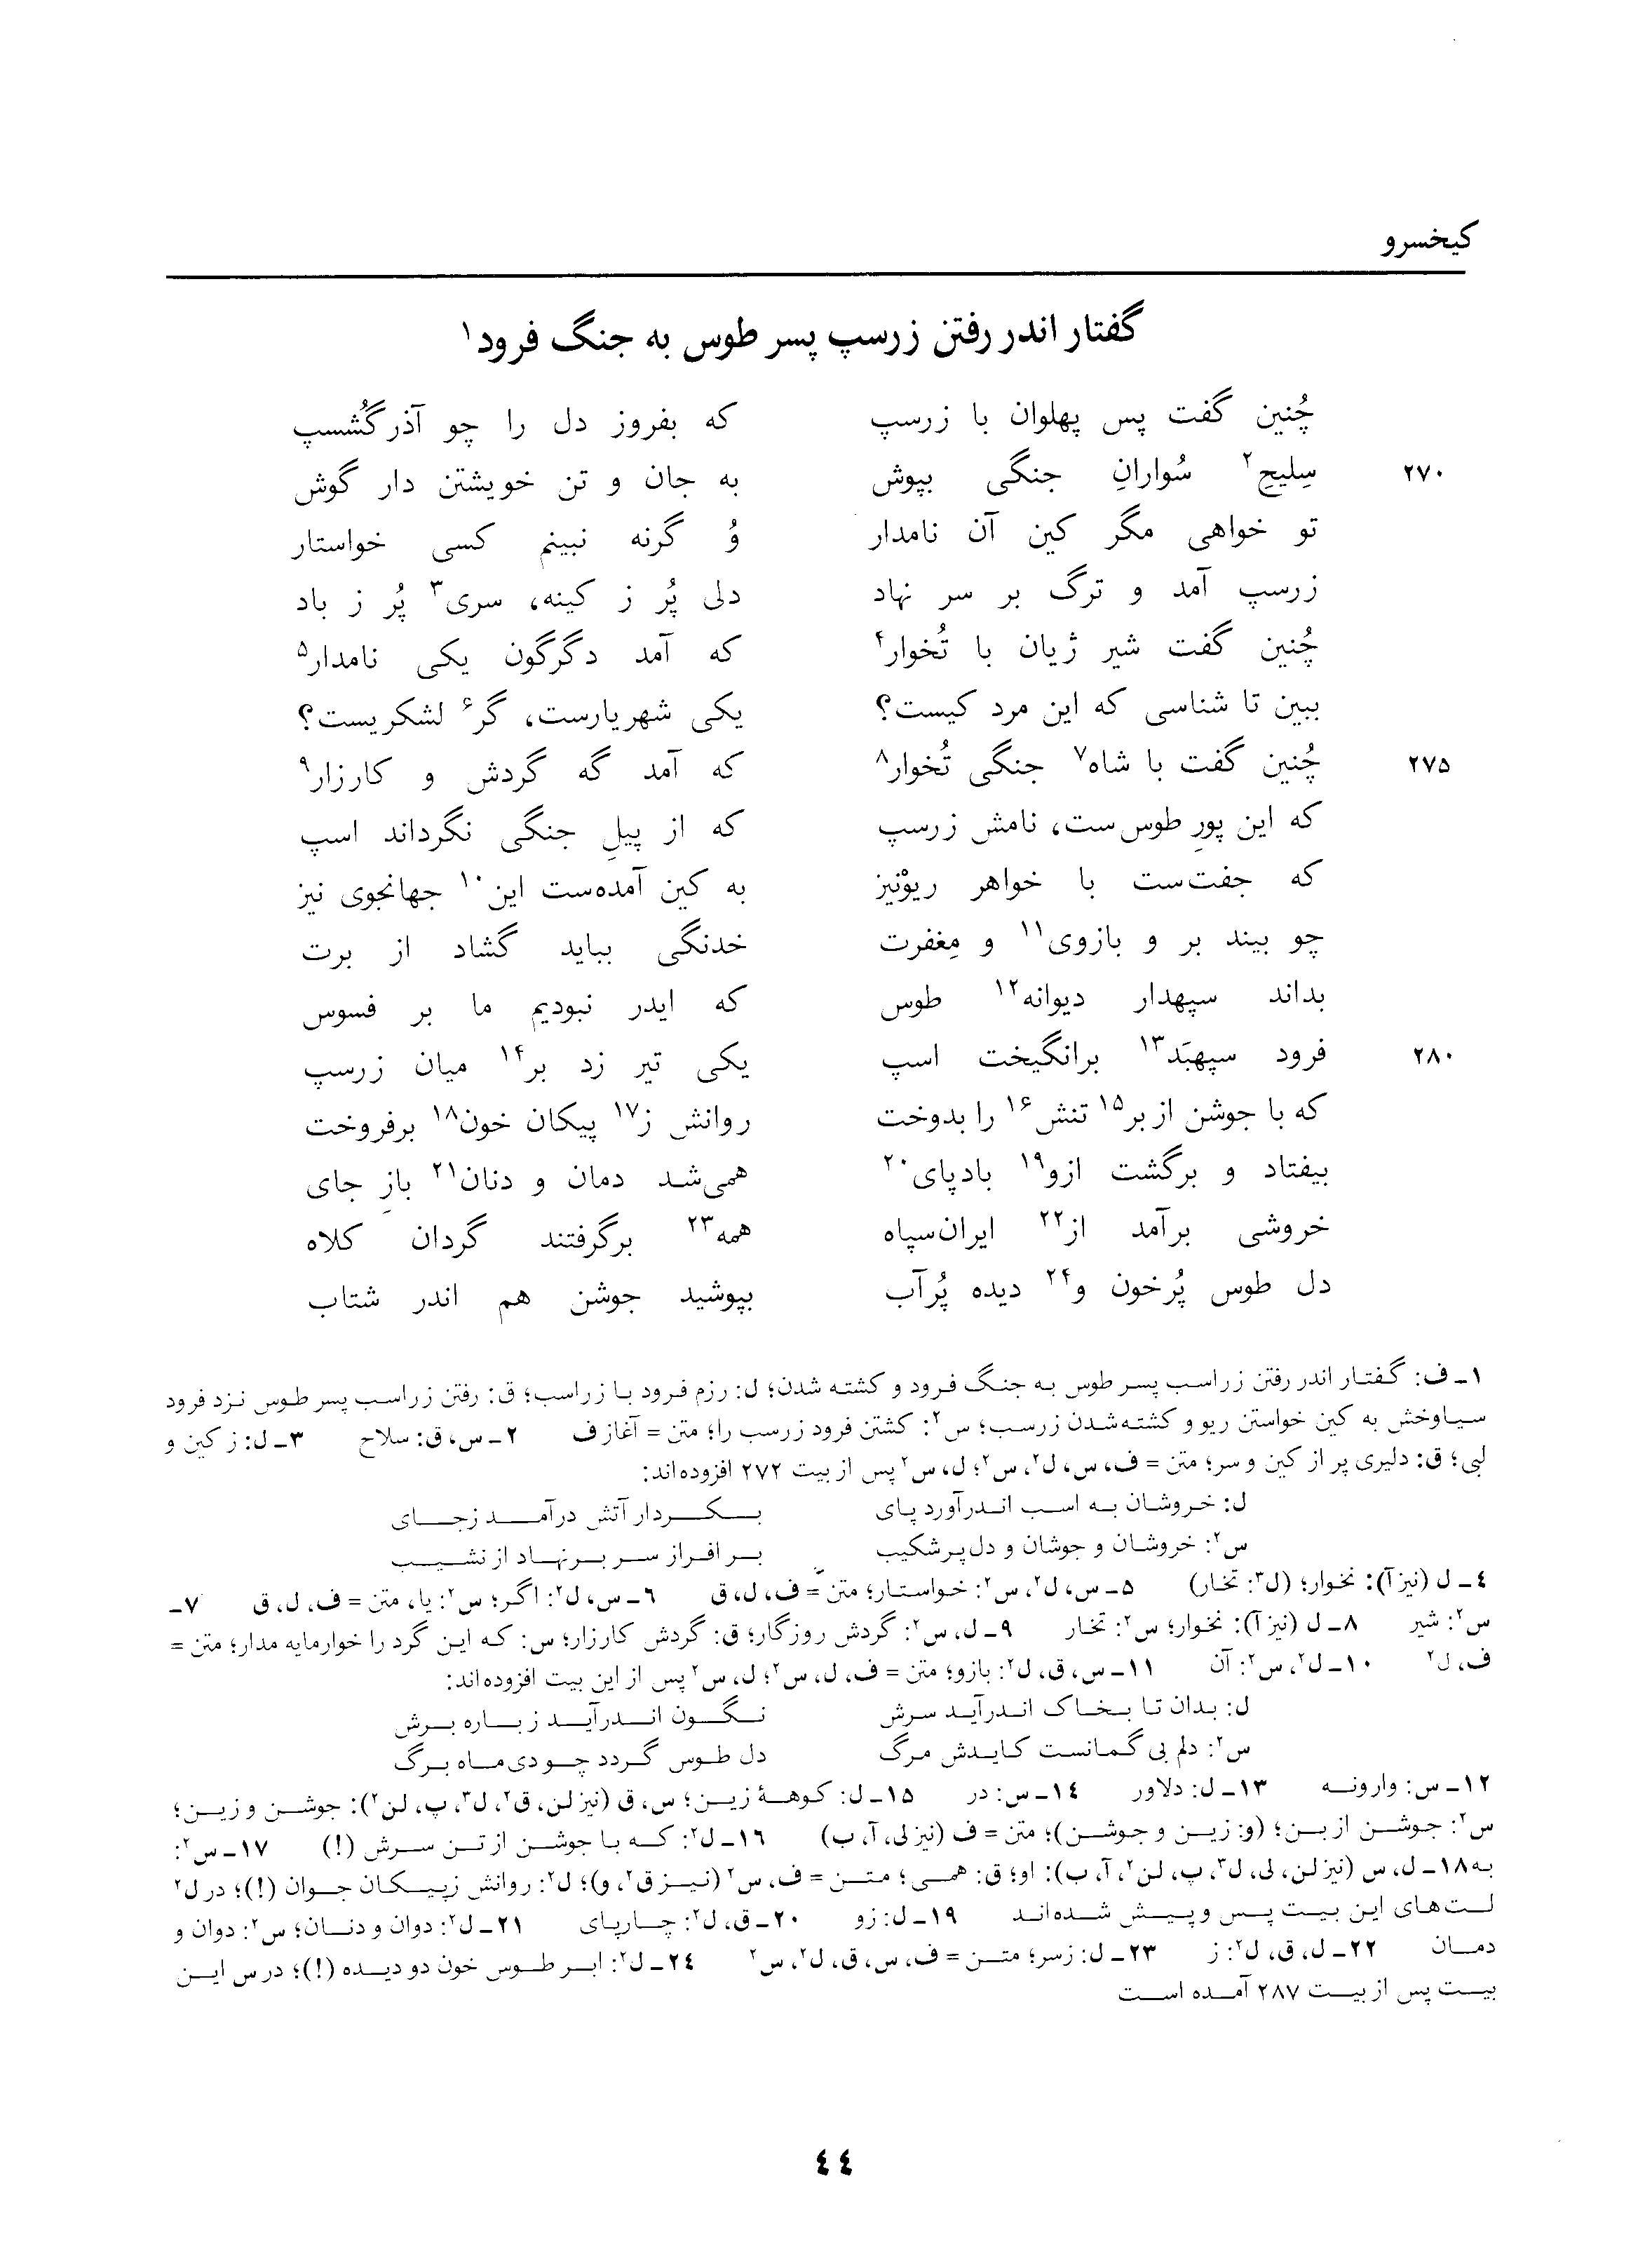 کیخسرو
گفتار اندر رفتن زرسپ پسر طوس به جنگ فرود۱
چُنین گفت پس پهلوان با زرسپ که بفروز دل را چو آذرگُشسپ
۲۷۰ سِلیحِ۲ سُوارانِ جنگی بپوش به جان و تن خویشتن دار گوش
تو خواهی مگر کین آن نامدار وُ گرنه نبینم کسی خواستار
زرسپ آمد و ترگ بر سر نهاد دلی پُر ز کینه، سری۳ پُر ز باد
چُنین گفت شیر ژیان با تُخوار۴ که آمد دگرگون یکی نامدار۵
ببین تا شناسی که این مرد کیست؟ یکی شهریارست، گر۶ لشکریست؟
۲۷۵ چُنین گفت با شاه۷ جنگی تُخوار۸ که آمد گه گردش و کارزار۹
که این پورِ طوس‌ست، نامش زرسپ که از پیلِ جنگی نگرداند اسپ
که جفت‌ست با خواهر ریوْنیز به کین آمده‌ست این۱۰ جهانجوی نیز
چو بیند بر و بازوی۱۱ و مِغفرت خدنگی بباید گشاد از برت
بداند سپهدار دیوانه۱۲ طوس که ایدر نبودیم ما بر فسوس
۲۸۰ فرود سپهبَد۱۳ برانگیخت اسپ یکی تیر زد بر۱۴ میان زرسپ
که با جوشن از بر۱۵ تنش۱۶ را بدوخت روانش ز۱۷ پیکان خون۱۸ برفروخت
بیفتاد و برگشت ازو۱۹ بادپای۲۰ همی‌شد دمان و دنان۲۱ بازِ جای
خروشی برآمد از۲۲ ایران‌سپاه همه۲۳ برگرفتند گردان کلاه
دل طوس پُرخون و۲۴ دیده پُرآب بپوشید جوشن هم اندر شتاب
۱ـ ف: گفتار اندر رفتن زراسب پسر طوس به جنگ فرود و کشته شدن؛ ل: رزم فرود با زراسب؛ ق: رفتن زراسب پسر طوس نزد فرود
سیاوخش به کین خواستن ریو و کشته‌شدن زرسب؛ س۲: کشتن فرود زرسب را؛ متن = آغاز ف ۲ـ س، ق: سلاح ۳ـ ل: ز کین و
لبی؛ ق: دلیری پر از کین و سر؛ متن = ف، س، ل۲، س۲؛ ل، س۲ پس از بیت ۲۷۲ افزوده‌اند:
ل: خروشان به اسب اندرآورد پای بکردار آتش درآمد زجای
س۲: خروشان و جوشان و دل‌پرشکیب بر افراز سر برنهاد از نشیب
۴ـ ل (نیز آ): نخوار؛ (ل۳: تخار) ۵ـ س، ل۲، س۲: خواستار؛ متن = ف، ل، ق ۶ـ س، ل۲: اگر؛ س۲: یا، متن = ف، ل، ق ۷ـ
س۲: شیر ۸ـ ل (نیز آ): نخوار؛ س۲: تخار ۹ـ ل، س۲: گردش روزگار؛ ق: گردش کارزار؛ س: که این گرد را خوارمایه مدار؛ متن =
ف، ل۲ ۱۰ـ ل۲، س۲: آن ۱۱ـ س، ق، ل۲: بازو؛ متن = ف، ل، س۲؛ ل، س۲ پس از این بیت افزوده‌اند:
ل: بدان تا بخاک اندرآید سرش نگون اندرآید ز باره برش
س۲: دلم بی گمانست کایدش مرگ دل طوس گردد چو دی‌ماه برگ
۱۲ـ س: وارونه ۱۳ـ ل: دلاور ۱۴ـ س: در ۱۵ـ ل: کوههٔ زین؛ س، ق (نیز لن، ق۲، ل۳، پ، لن۲): جوشن و زین؛
س۲: جوشن از بن؛ (و: زین و جوشن)؛ متن = ف (نیز لی، آ، ب) ۱۶ـ ل۲: که با جوشن از تن سرش (!) ۱۷ـ س۲:
به۱۸ـ ل، س (نیز لن، لی، ل۳، پ، لن۲، آ، ب): او؛ ق: همی؛ متن = ف، س۲ (نیز ق۲، و)؛ ل۲: روانش زپیکان جوان (!)؛ در ل۲
لت‌های این بیت پس و پیش شده‌اند ۱۹ـ ل: زو ۲۰ـ ق، ل۲: چارپای ۲۱ـ ل۲: دوان و دنان؛ س۲: دوان و
دمان ۲۲ـ ل، ق، ل۲: ز ۲۳ـ ل: زسر؛ متن = ف، س، ق، ل۲، س۲ ۲۴ـ ل۲: ابر طوس خون دو دیده (!)؛ در س این
بیت پس از بیت ۲۸۷ آمده است
٤٤